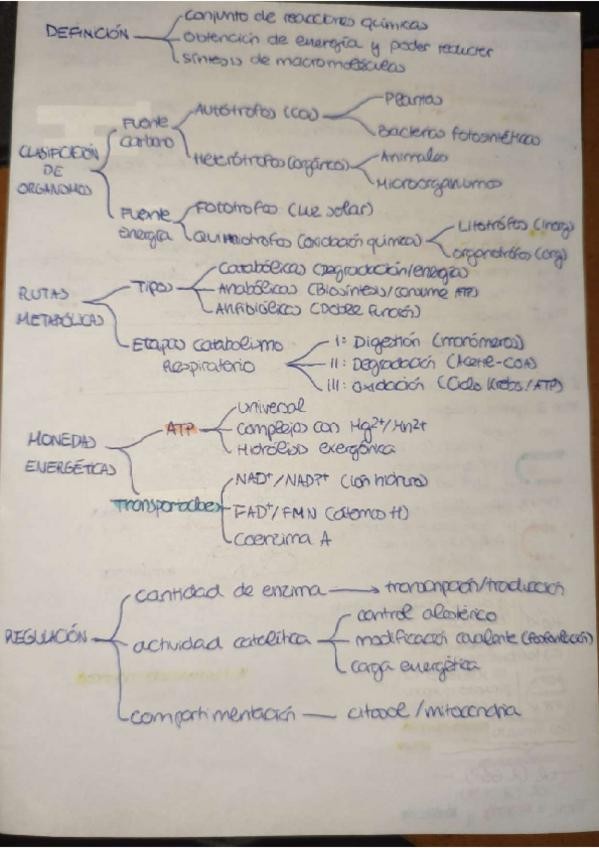 DEFINICIÓN
conjunto de reacciones químicas
obtención de energía y poder reductor
síntesis de macromoléculas
CLASIFICACIÓN DE ORGANISMOS
Fuente carbono
Autótrofos (CO2)
Plantas
Bacterias fotosintéticas
Heterótrofos (orgánico)
Animales
Microorganismos
Fuente energía
Fototrofos (luz solar)
Quimiotrofos (oxidación química)
Litotrófos (inorg)
organotrófos (org)
RUTAS METABÓLICAS
Tipos
Catabólicas (Degradación/energía)
Anabólicas (Biosíntesis/consume ATP)
Anfibólicas (Doble función)
Etapas catabolismo Respiratorio
I: Digestión (monómeros)
II: Degradación (Acetil-COA)
III: oxidación (Ciclo Krebs/ATP)
MONEDAS ENERGÉTICAS
ATP
Universal
complejos con Mg2+/Mn2+
Hidrólisis exergónica
Transportadores
NAD+/NADP+ (ión hidruro)
FAD+/FMN (átomos H)
Coenzima A
REGULACIÓN
cantidad de enzima → transcripción/traducción
actividad catalítica
control alostérico
modificación covalente (fosforilación)
carga energética
compartimentación — citosol/mitocondria